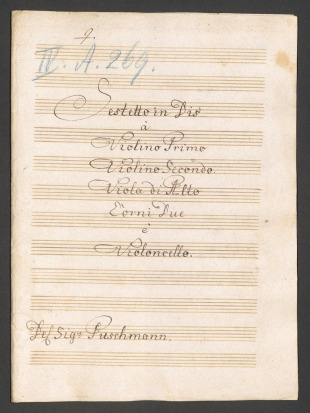 9.
IV. A. 269.
Sestetto in Dis
à
Violino Primo
Violino Secondo.
Viola di Alto
Corni Due
è
Violoncello.
Del Sigr Puschmann.